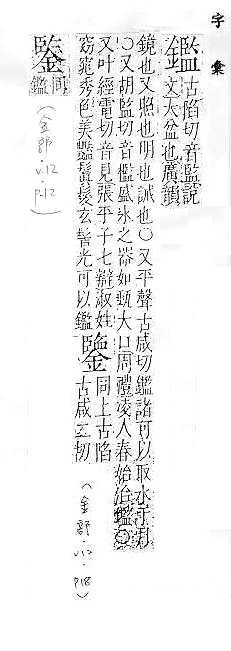 字彙
鑑 古陷切音監說
文大盆也廣韻
鏡也又照也明也誡也○又平聲古咸切鑑諸可以取水于月
○又胡監切音檻盛氷之器如甄大口周禮淩人春始治鑑○
又叶經電切音見張平子七辯淑性
窈窕秀色美豔鬒髮玄髻光可以鑑 鑒 同上古陷
古咸二切
鍳 同
鑑
(金部.v12
P12)
(金部.v12.
P18)